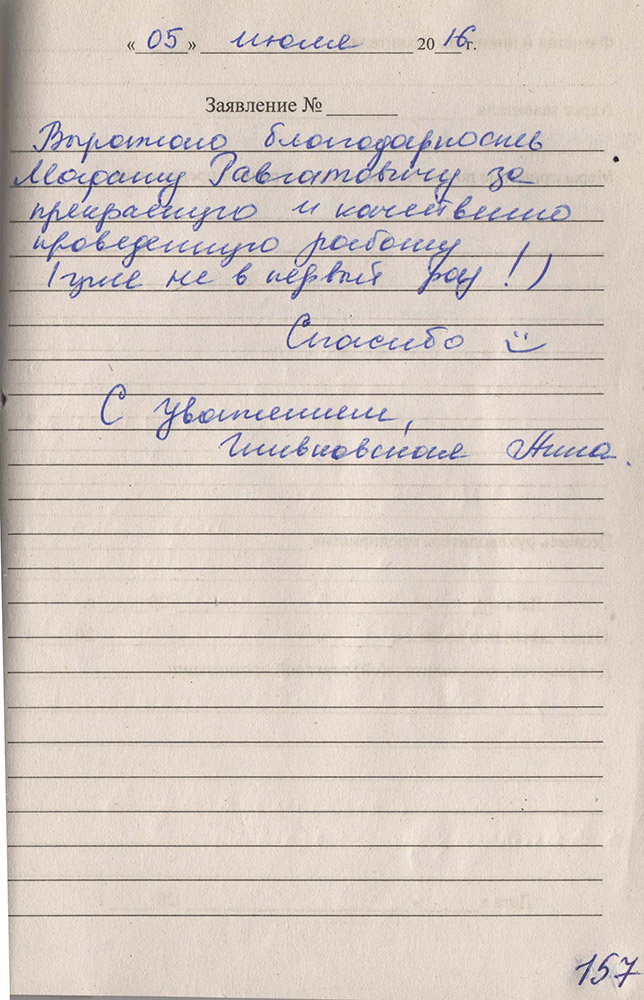 « 05 » июля 2016 г.
Заявление №
Выражаю благодарность
Равгатовичу за
прекрасную и качественно
проведенную работу
(уже не в первый раз!)
Спасибо
С уважением,
Анна.
157